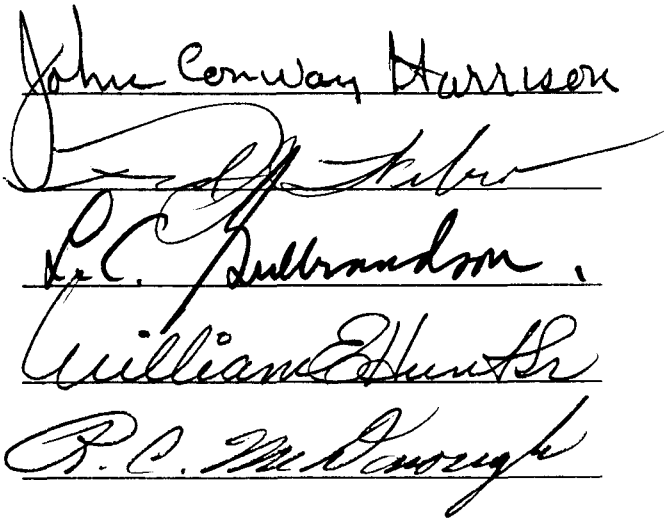 John Conway Harrison
L. C. Gulbrandson.
William E Hunt Sr
R. C. McDonough